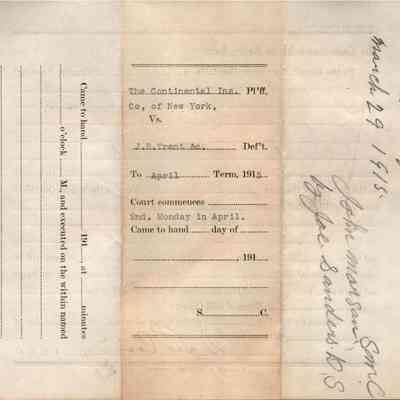 Came to hand 191 , at minutes
o'clock M., and executed on the within named
The Continental Ins. Pl'ff,
Co, of New York,
Vs.
J.B.Trent &c. Def't.
To April Term, 1915
Court commences
2nd. Monday in April.
Came to hand day of
, 191
S. C.
March 29 1915
John Morgan S.M.C
by Joe Sanders D.S